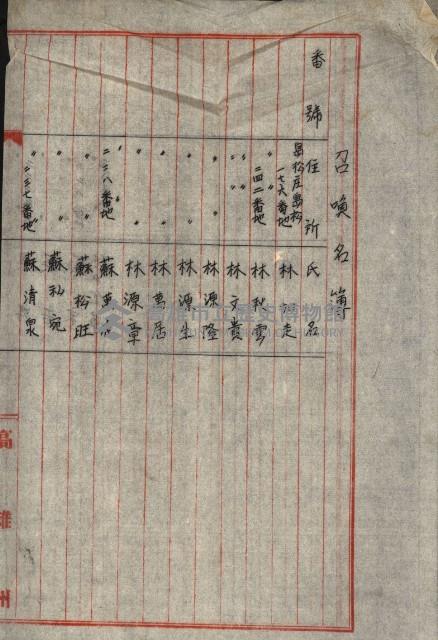 召喚名簿
番號 住所 氏名
鳥松庄鳥松一七六番地 林 走
二四二番地 林秋雲
〃 〃 林文貴
〃 〃 林源隆
〃 〃 林源生
〃 〃 林萬居
〃 〃 林源章
〃 二三八番地 蘇
〃 〃 蘇松旺
〃 〃 蘇私宛
〃 二三七番地 蘇清泉
高雄州
高雄市立歷史博物館